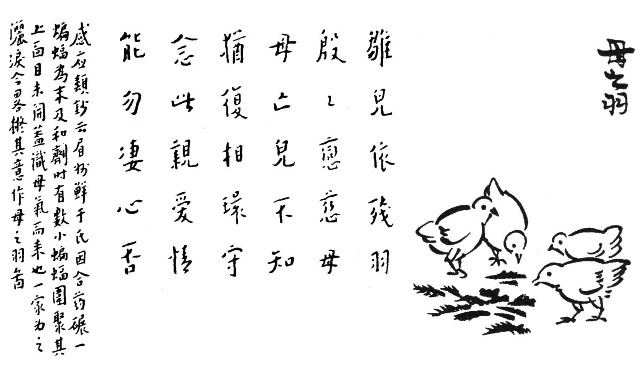 母之羽
雛兒依殘羽
殷〻戀慈母
母亡兒不知
猶復相環守
念此親愛情
能勿凄心否
感應類鈔云眉州鮮于氏因合药碾一
蝙蝠為末及和劑时有數小蝙蝠圍聚其
上面目未開蓋識母氣而来也一家为之
灑淚今畧擬其意作母之羽啚